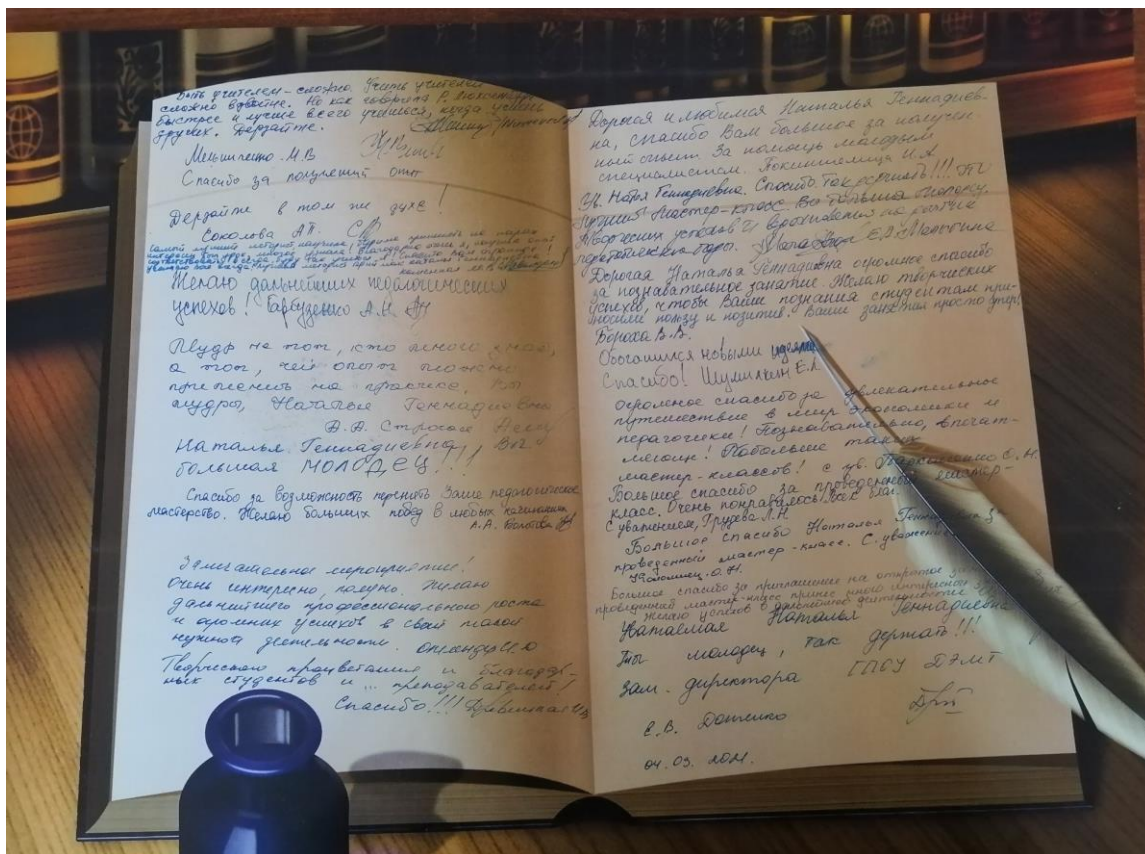 Быть учителем - сложно. Учить учителей
сложно вдвойне. Но как говорила Р. Люксембург
быстрее и лучше всего учишься, когда учишь
других. Дерзайте.
Мельниченко М.В
Спасибо за полученный опыт
Дерзайте в том же духе!
Соколова А.П.
Желаю дальнейших педагогических
успехов! Гарбузенко А.Н.
Мудр не тот, кто много знает,
а тот, чей опыт можно
применить на практике. Вы
мудры, Наталья Геннадиевна
А.А. Строгая
Наталья Геннадиевна, Вы
большая МОЛОДЕЦ!!!
Спасибо за возможность перенять Ваше педагогическое
мастерство. Желаю больших побед в любых начинаниях
А.А. Болотова
Замечательное мероприятие!
Очень интересно, полезно. Желаю
дальнейшего профессионального роста
и огромных успехов в своей такой
нужной деятельности.
Творческого процветания и благодар-
ных студентов и ... преподавателей!
Спасибо!!!
Дорогая и любимая Наталья Геннадиев-
на, спасибо Вам большое за получен-
ный опыт. За помощь молодым
специалистам.
Ув. Наталья Геннадиевна. Спасибо. Так держать!!!
лучший мастер-класс.
творческих успехов и вдохновения на долгие
педагогические годы. Малютина
Дорогая Наталья Геннадиевна огромное спасибо
за познавательное занятие. Желаю творческих
успехов, чтобы Ваши познания студентам при-
носили пользу и позитив. Ваши занятия просто супер,
Бороха В.В.
Обогатился новыми идеями
Спасибо! Шумилкин Е.А
Огромное спасибо за увлекательное
путешествие в мир экономики и
педагогики! Познавательно, впечат-
Побольше таких
мастер-классов! С ув. Е.Н.
Большое спасибо за проведенный мастер-
класс. Очень понравилось! Всех благ.
С уважением, Грудева Л.Н
Большое спасибо Наталья Геннадиевна за
проведенный мастер-класс. С уважением
Коломиец О.Н.
Большое спасибо за приглашение на открытое
проведенный мастер-класс принес много интересного
Желаю успехов в дальнейшей деятельности
Уважаемая Наталья Геннадиевна
Ты молодец, так держать!!!
Зам. директора ГПОУ ДЭМТ
Е.В. Доженко
04.03.2021.